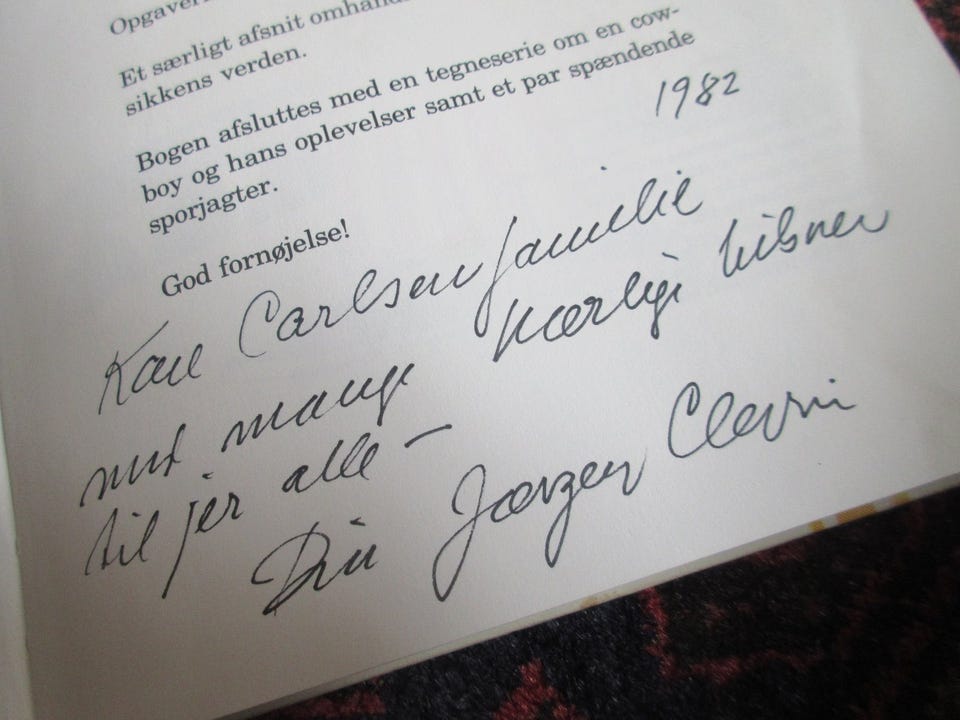 Opgaver
Et særligt afsnit omhand
sikkens verden.
Bogen afsluttes med en tegneserie om en cow-
boy og hans oplevelser samt et par spændende
sporjagter.
God fornøjelse!
1982
Kære Carlsen familie
med mange kærlige hilsner
til jer alle —
Din Jørgen Clevin